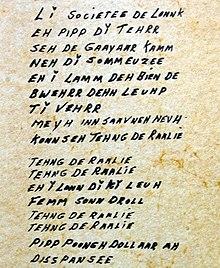 Li Societee de Lohnk
Eh Pipp dï Tehrr
Seh de Gaayaar Kamm
Neh dï Sommeuzee
Eh ï Lamm deh Bien de
Bwehrr dehn Leuhp
Tï Vehrr
Meyh inn Saavneh neuh-
Konnseh Tehng de Raalie
Tehng de Raalie
Tehng de Raalie
Eh ï Lonn dï kï Leuh
Femm Sonn Droll
Tehng de Raalie
Tehng de Raalie
Pipp Poongh Dollaar ah
Disspansee